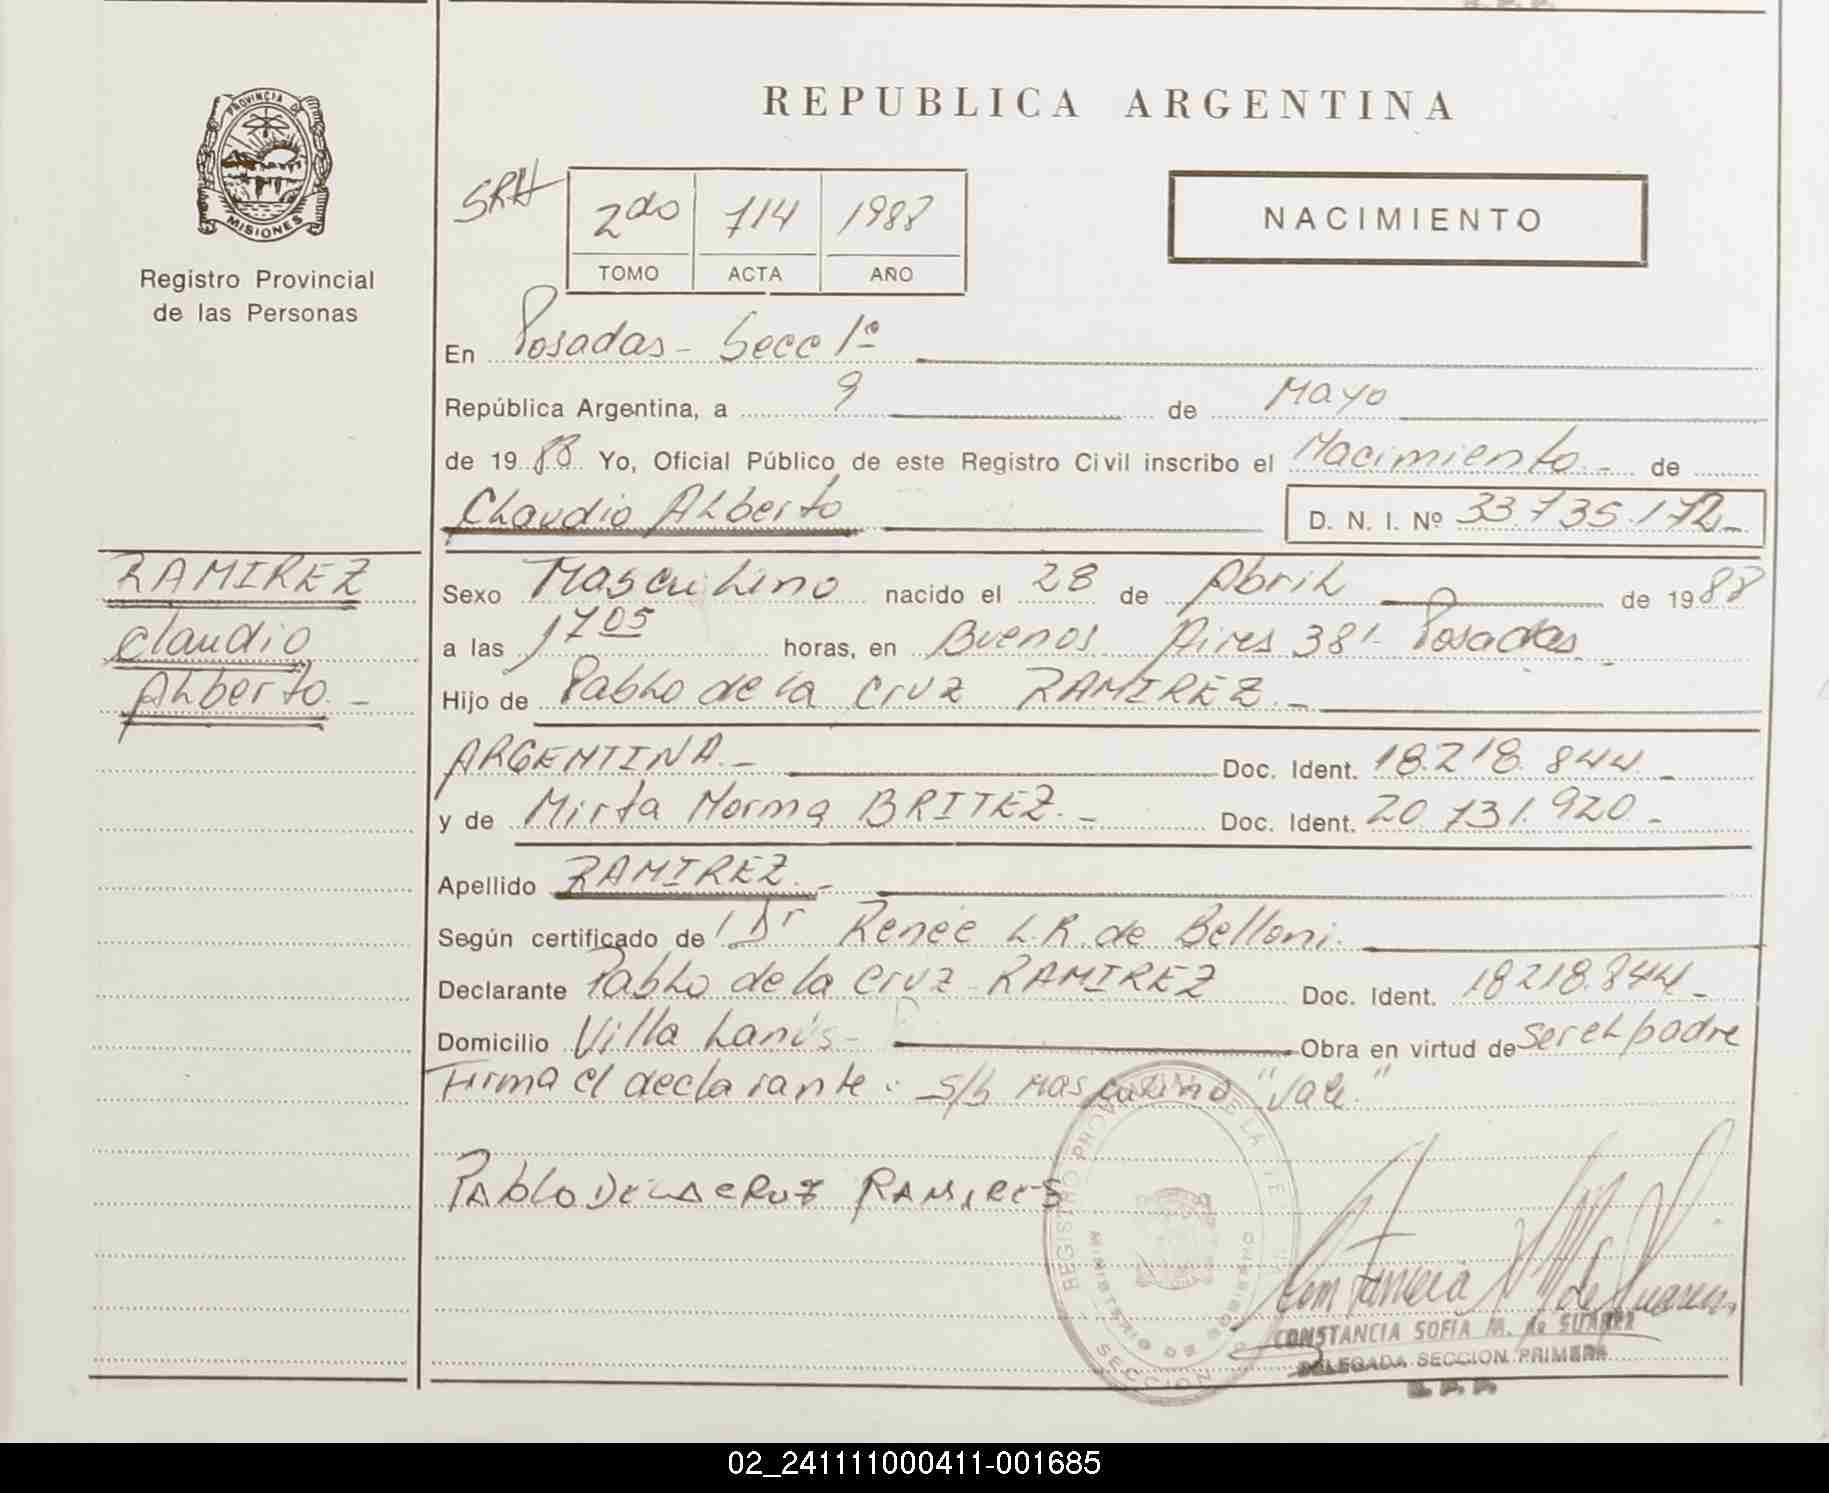 REPUBLICA ARGENTINA
PROVINCIA DE
MISIONES
Registro Provincial
de las Personas
SRH
2do 714 1988
TOMO ACTA AÑO
NACIMIENTO
En Posadas - Secc 1º
República Argentina, a 9 de Mayo
de 1988 Yo, Oficial Público de este Registro Civil inscribo el Nacimiento - de
Claudio Alberto D. N. I. Nº 33.735.172 -
RAMIREZ
Claudio
Alberto. -
Sexo Masculino nacido el 28 de Abril de 1988
a las 17 05 horas, en Buenos Aires 381- Posadas -
Hijo de Pablo de la Cruz RAMIREZ. -
ARGENTINA. - Doc. Ident. 18.218.844. -
y de Mirta Norma BRITEZ. - Doc. Ident. 20.731.920 -
Apellido RAMIREZ. -
Según certificado de Dr Renée L.R. de Belloni.
Declarante Pablo de la Cruz RAMIREZ Doc. Ident. 18218.844 -
Domicilio Villa Lanús - Obra en virtud de ser el padre
Firma el declarante: s/b Masculino "Vale"
PABLO DE LA CRUZ RAMIRES
REGISTRO PROVINCIAL DE LA
MINISTERIO DE GOBIERNO
SECCION
Constancia de Suarez
CONSTANCIA SOFIA M. de SUAREZ
DELEGADA SECCION PRIMERA
R. P. P.
02_241111000411-001685